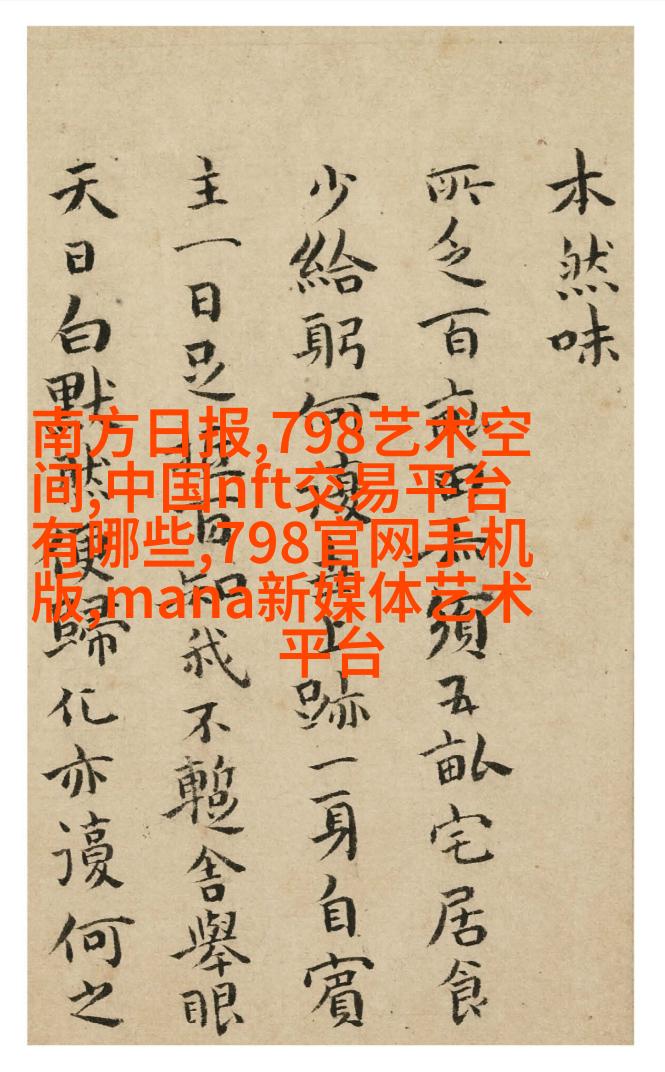 本然味
所乏百畝田須五畝宅居食
少給躬何上跡一身自賓
主一日足知我不暫舍舉眼
天日白默然歸化亦何之
南方日报,798艺术空
间,中国nft交易平台
有哪些,798官网手机
版,mana新媒体艺术
平台